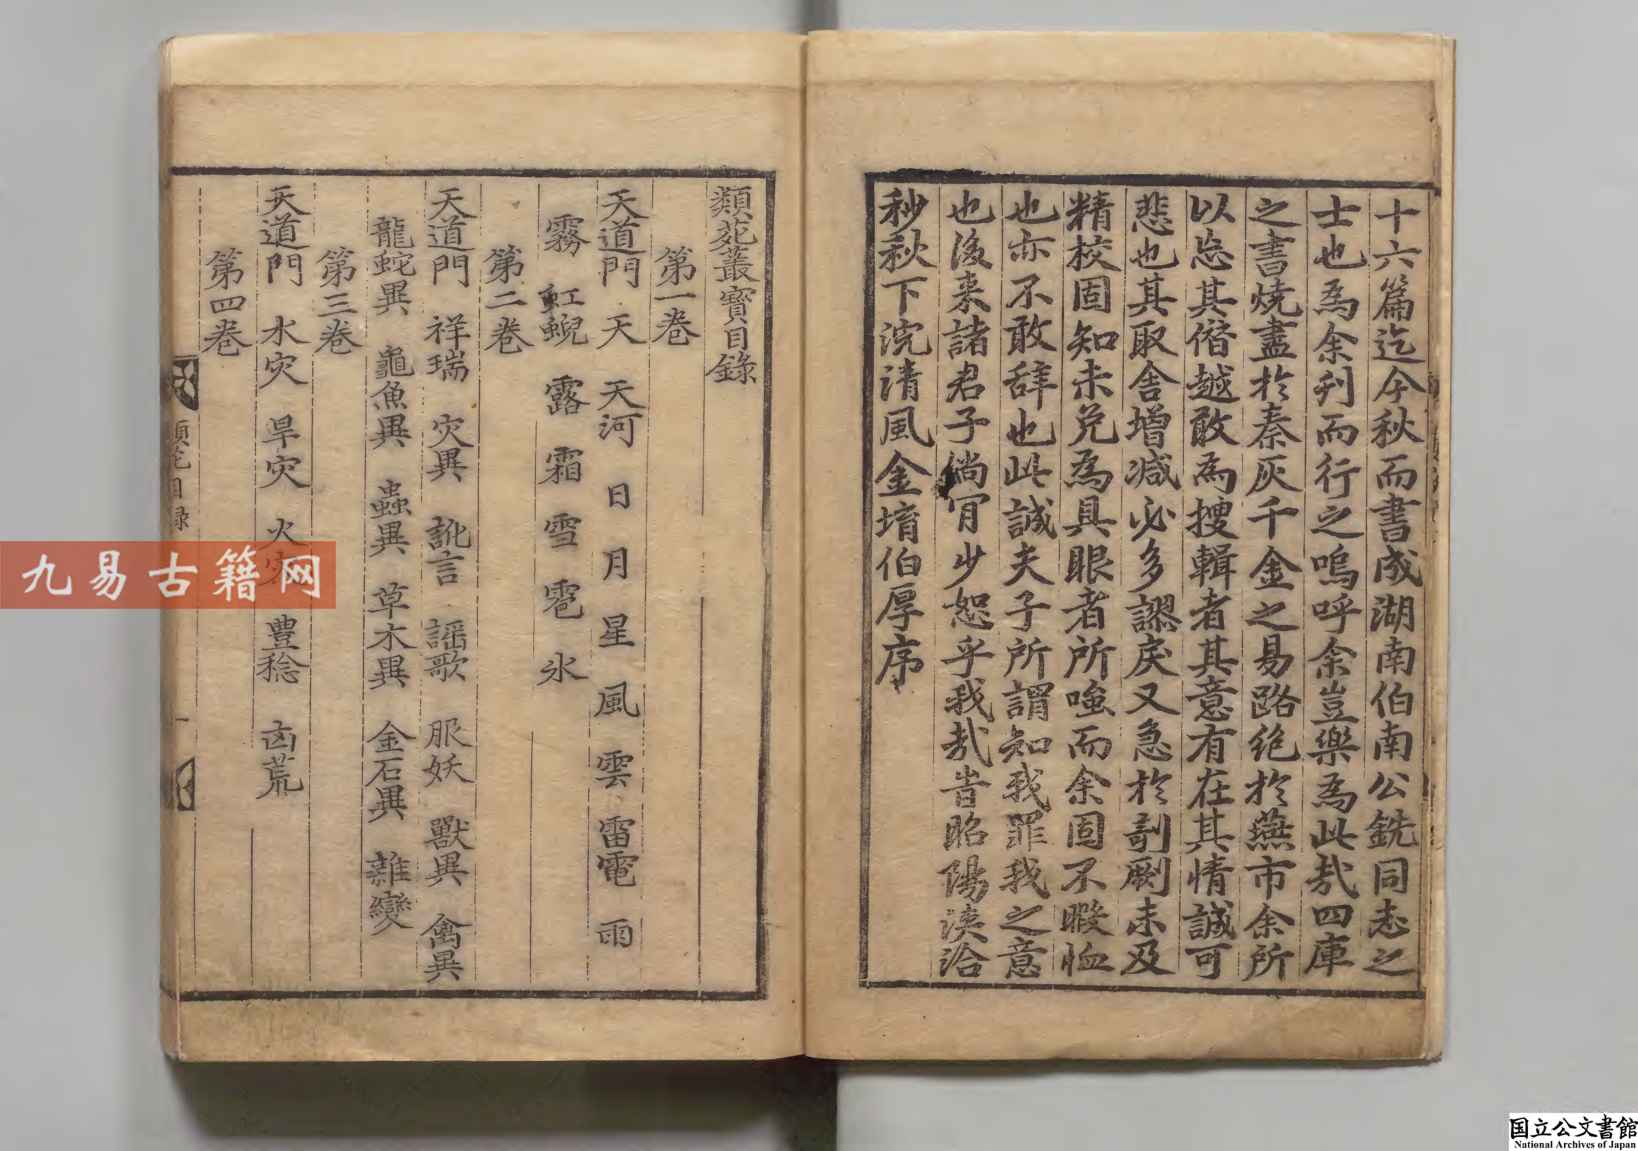 十六篇迄今秋而書成湖南伯南公銑同志之
士也為余刋而行之嗚呼余豈樂為此㦲四庫
之書燒盡於秦灰千金之易路絶於燕市余所
以忘其僭越敢為搜輯者其意有在其情誠可
悲也其取舎增减必多謬戾又急於剞劂未及
精校固知未免為具眼者所嗤而余固不暇恤
也亦不敢辞也此誠夫子所謂知我罪我之意
也後来諸君子倘肎少恕乎我㦲旹昭陽浹洽
秒秋下浣清風金堉伯厚序
類苑叢寶目錄
第一卷
天道門 天 天河 日 月 星 風 雲 雷電 雨
霧 虹蜺 露 霜 雪 雹 氷
第二卷
天道門 祥瑞 灾異 訛言 謡歌 服妖 獸異 禽異
龍蛇異 龜魚異 蟲異 草木異 金石異 雜變
第三卷
天道門 水灾 旱灾 火灾 豊稔 凶荒
第四卷
類苑目録
一
九易古籍网
国立公文書館
National Archives of Japan